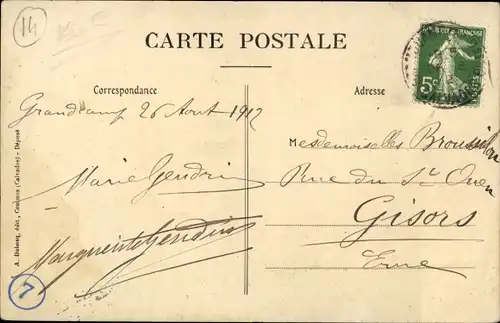 14
CARTE POSTALE
REPUBLIQUE FRANÇAISE
5c
POSTES
Correspondance
Adresse
Grandcamp 26 Aout 1912
Mesdemoiselles
Marie Gendrin
Rue du St Ouen
Gisors
Marguerite Gendrin
Eure
7
Déposé